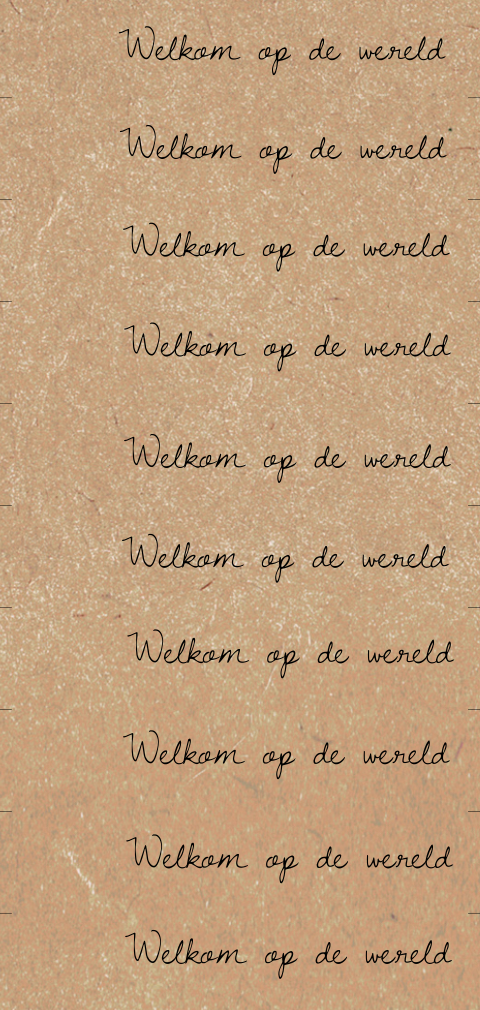 Welkom op de wereld
Welkom op de wereld
Welkom op de wereld
Welkom op de wereld
Welkom op de wereld
Welkom op de wereld
Welkom op de wereld
Welkom op de wereld
Welkom op de wereld
Welkom op de wereld